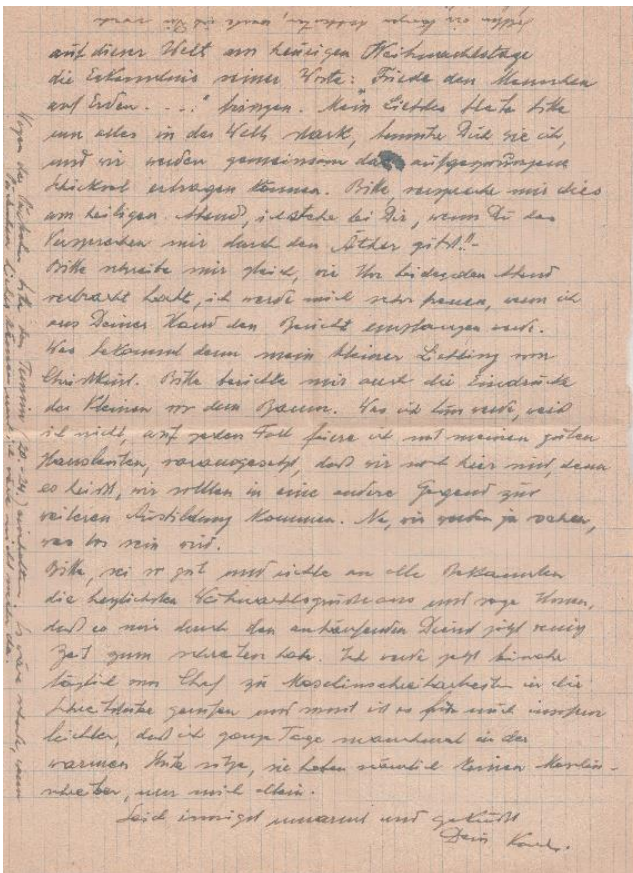 auf dieser Welt am heutigen Weihnachtstage
die Erkenntnis seiner Worte: "Friede den Menschen
auf Erden . . . ." bringen. Mein Liebstes bleibe bitte
um alles in der Welt stark, Dich wie ich,
und wir werden gemeinsam das aufgezwungene
Schicksal ertragen können. Bitte, verspreche mir dies
am heiligen Abend, ich stehe bei Dir, wenn Du das
Versprechen mir durch den Äther gibst!!-
Bitte schreibe mir gleich, wie Ihr beiden den Abend
verbracht habt, ich werde mich sehr freuen, wenn ich
aus Deiner Hand den Bericht empfangen werde.
Was bekommt denn mein kleiner Liebling vom
Christkind. Bitte berichte mir auch die Eindrücke
des Kleinen vor dem Baum. Was ich tun werde, weiß
ich nicht, auf jeden Fall feiere ich mit meinen guten
Hausleuten, vorausgesetzt, daß wir noch hier sind, denn
es heißt, wir sollten in eine andere Gegend zur
weiteren Ausbildung kommen. Na, wir werden ja sehen,
was los sein wird.
Bitte, sei so gut und richte an alle Bekannten
die herzlichsten Weihnachtsgrüße aus und sage Ihnen,
daß es mir durch den Dienst jetzt wenig
Zeit zum schreiben habe. Ich werde jetzt beinahe
täglich vom Chef zu Maschinschreibarbeiten in die
Schreibstube gerufen und
leichter, daß ich ganze Tage manchmal in der
warmen sitze, sie haben nämlich keinen Maschin-
schreiber, nur mich allein.
Seid innigst umarmt und geküßt
Dein Karl.
Wegen der Päckchen bitte den Termin 20.-24. einhalten. Es wäre schade, wenn